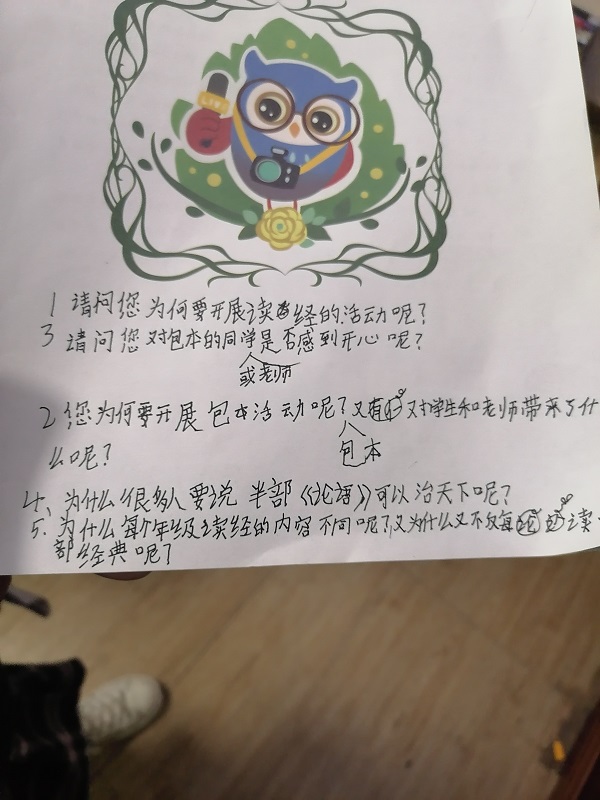 LIVE
1 请问您为何要开展读经的活动呢?
3 请问您对包本的同学是否感到开心呢?
或老师
2 您为何要开展包本活动呢?又有 对学生和老师带来了什
包本
么呢?
4、为什么很多人要说半部《论语》可以治天下呢?
5. 为什么每个年级读经的内容不同呢?又为什么又不 每 读一
部经典呢?